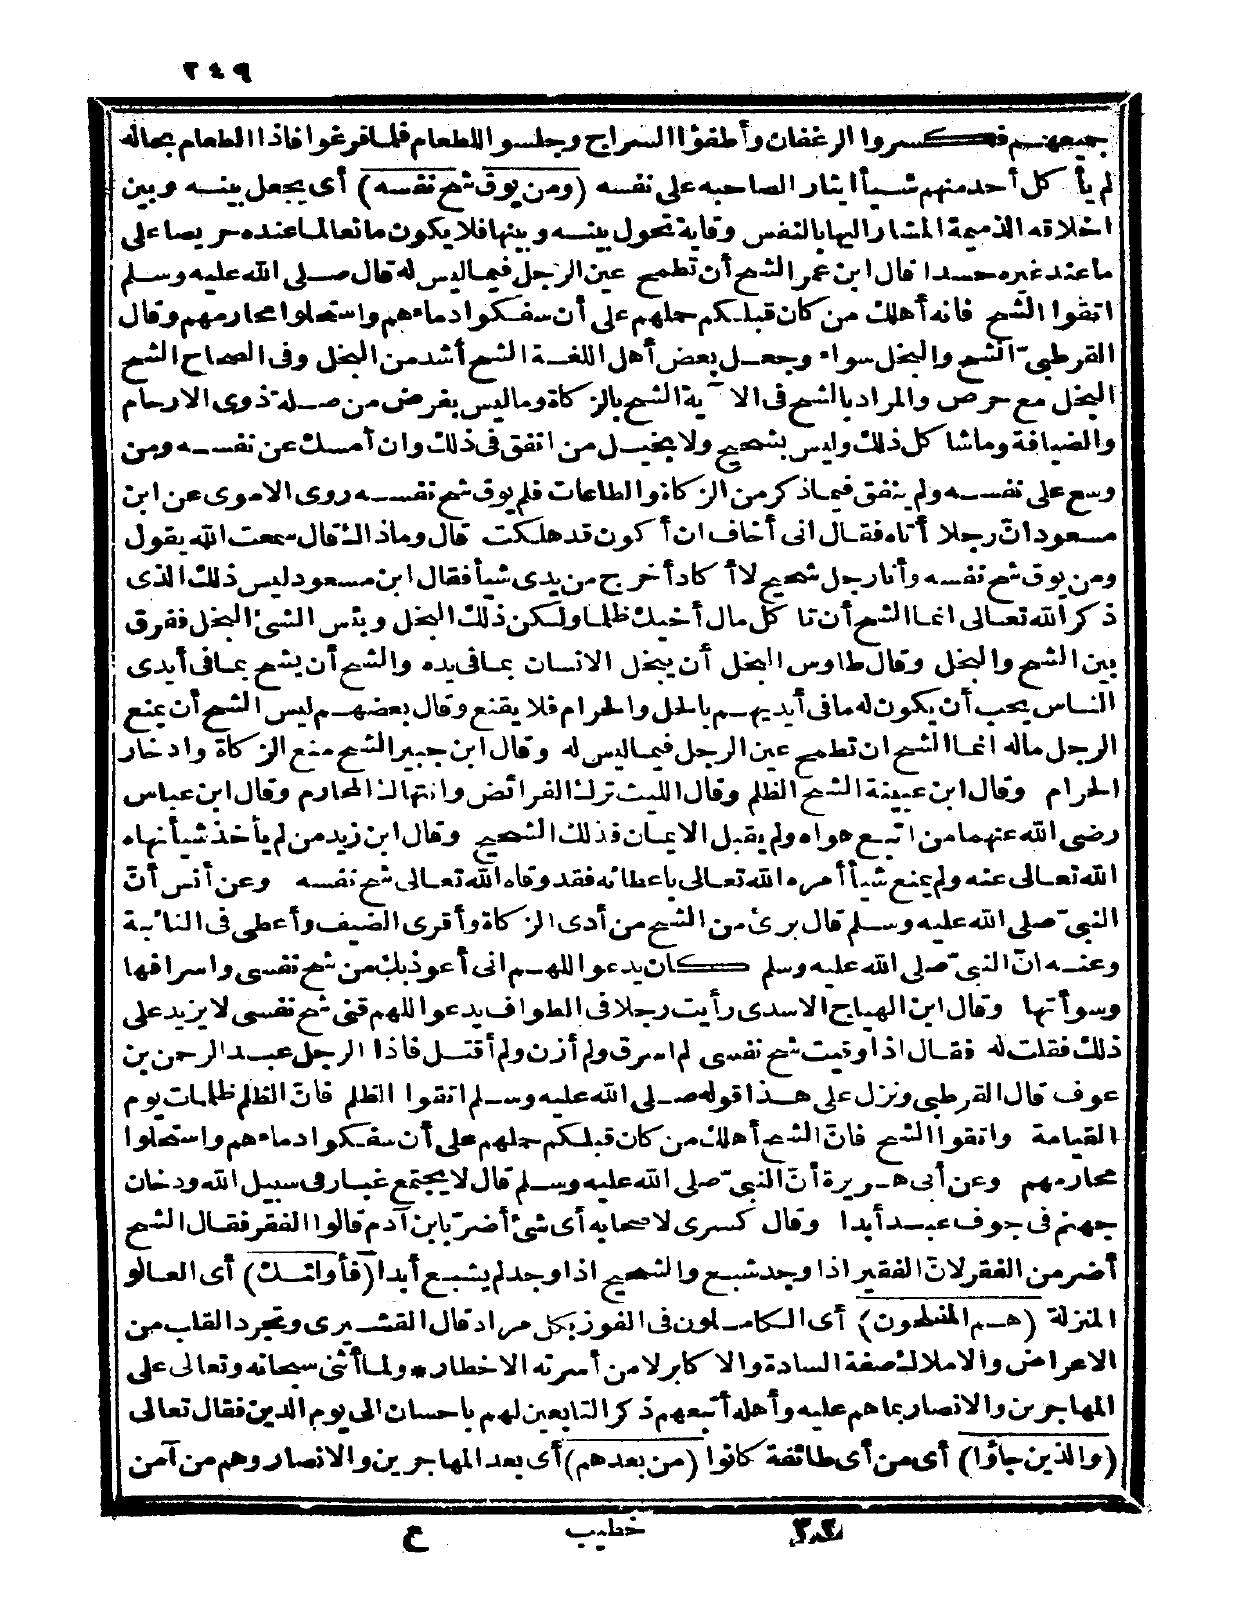 ٢٤٩
جميعهم فكسروا الرغفان وأطفؤا السراج وجلسوا للطعام فلما فرغوا فاذا الطعام بحاله
لم يأكل أحد منهم شيأ ايثار الصاحبه على نفسه (ومن يوق شح نفسه) أى يجعل بينه وبين
اخلاقه الذميمة المشار اليها بالنفس وقاية تحول بينه وبينها فلا يكون مانعا لما عنده حريصا على
ما عند غيره حسدا قال ابن عمر الشح أن تطمح عين الرجل فيما ليس له قال صلى الله عليه وسلم
اتقوا الشح فانه أهلك من كان قبلكم حملهم على أن سفكوا دماءهم واستحلوا محارمهم وقال
القرطبىّ الشح والبخل سواء وجعل بعض أهل اللغة الشح أشد من البخل وفى الصحاح الشح
البخل مع حرص والمراد بالشح فى الآية الشح بالزكاة وما ليس بفرض من صلة ذوى الارحام
والضيافة وما شاكل ذلك وليس بشحيح ولا بخيل من انفق فى ذلك وان أمسك عن نفسه ومن
وسع على نفسه ولم ينفق فيما ذكر من الزكاة والطاعات فلم يوق شح نفسه روى الاموى عن ابن
مسعود انّ رجلا أتاه فقال انى أخاف ان أكون قد هلكت قال وما ذاك قال سمعت الله يقول
ومن يوق شح نفسه وأنا رجل شحيح لا أكاد أخرج من يدى شيأ فقال ابن مسعود ليس ذلك الذى
ذكر الله تعالى انما الشح أن تأكل مال أخيك ظلما ولكن ذلك البخل وبئس الشئ البخل ففرق
بين الشح والبخل وقال طاوس البخل أن يبخل الانسان بما فى يده والشح أن يشح بما فى أيدى
الناس يحب أن يكون له ما فى أيديهم بالحل والحرام فلا يقنع وقال بعضهم ليس الشح أن يمنع
الرجل ماله انما الشح ان تطمح عين الرجل فيما ليس له وقال ابن جبير الشح منع الزكاة وادخار
الحرام وقال ابن عيينة الشح الظلم وقال الليث ترك الفرائض وانتهاك المحارم وقال ابن عباس
رضى الله عنهما من اتبع هواه ولم يقبل الايمان فذلك الشحيح وقال ابن زيد من لم يأخذ شيأ نهاه
الله تعالى عنه ولم يمنع شيأ أمره الله تعالى باعطائه فقد وقاه الله تعالى شح نفسه وعن أنس أنّ
النبىّ صلى الله عليه وسلم قال برئ من الشح من أدى الزكاة وأقرى الضيف وأعطى فى النائبة
وعنه انّ النبىّ صلى الله عليه وسلم كان يدعو اللهم انى أعوذ بك من شح نفسى واسرافها
وسوأتها وقال ابن الهياج الاسدى رأيت رجلا فى الطواف يدعو اللهم قنى شح نفسى لا يزيد على
ذلك فقلت له فقال اذا وقيت شح نفسى لم اسرق ولم أزن ولم أقتل فاذا الرجل عبد الرحمن بن
عوف قال القرطبى ونزل على هذا قوله صلى الله عليه وسلم اتقوا الظلم فانّ الظلم ظلمات يوم
القيامة واتقوا الشح فانّ الشح أهلك من كان قبلكم حملهم على أن سفكوا دماءهم واستحلوا
محارمهم وعن أبى هريرة أنّ النبىّ صلى الله عليه وسلم قال لا يجتمع غبار فى سبيل الله ودخان
جهنم فى جوف عبد أبدا وقال كسرى لاصحابه أى شئ أضرّ بابن آدم قالوا الفقر فقال الشح
أضر من الفقر لانّ الفقير اذا وجد شبع والشحيح اذا وجد لم يشبع أبدا (فأولئك) أى العالو
المنزلة (هم المفلحون) أى الكاملون فى الفوز بكل مراد قال القشيرى وتجرد القلب من
الاعراض والاملاك صفة السادة والاكابر لا من أسرته الاخطار * ولما أثنى سبحانه وتعالى على
المهاجرين والانصار بما هم عليه وأهله أتبعهم ذكر التابعين لهم باحسان الى يوم الدين فقال تعالى
(والذين جاؤا) أى من أى طائفة كانوا (من بعدهم) أى بعد المهاجرين والانصار وهم من آمن
٣٢ خطيب ع